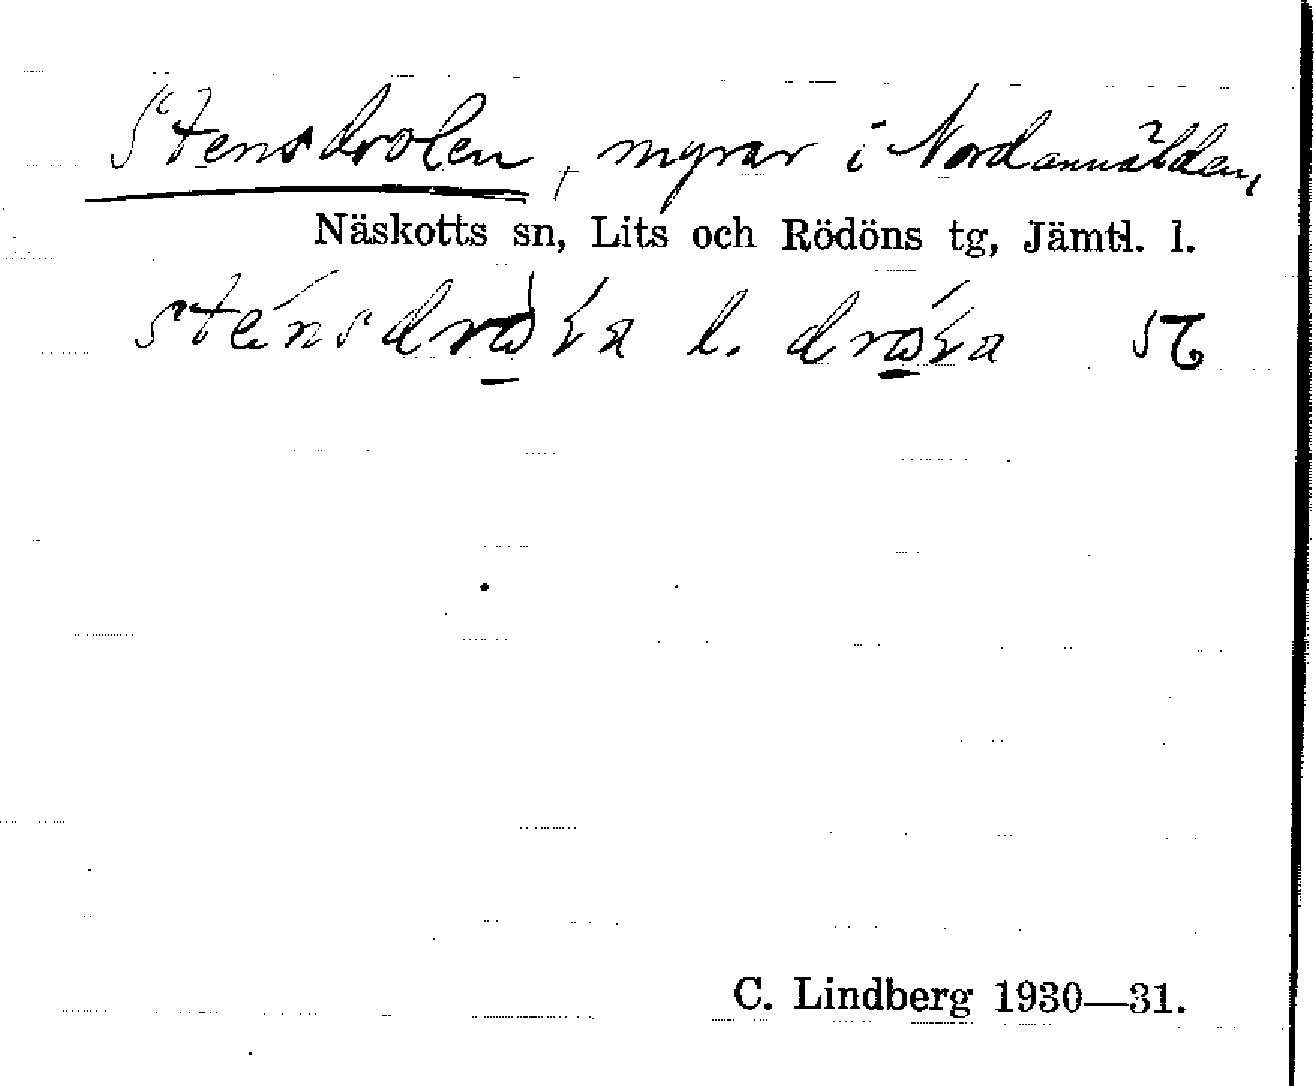 Stensdrolen, myrar i Nordannälden,
Näskotts sn, Lits och Rödöns tg, Jämtl. l.
l.
C. Lindberg 1930—31.